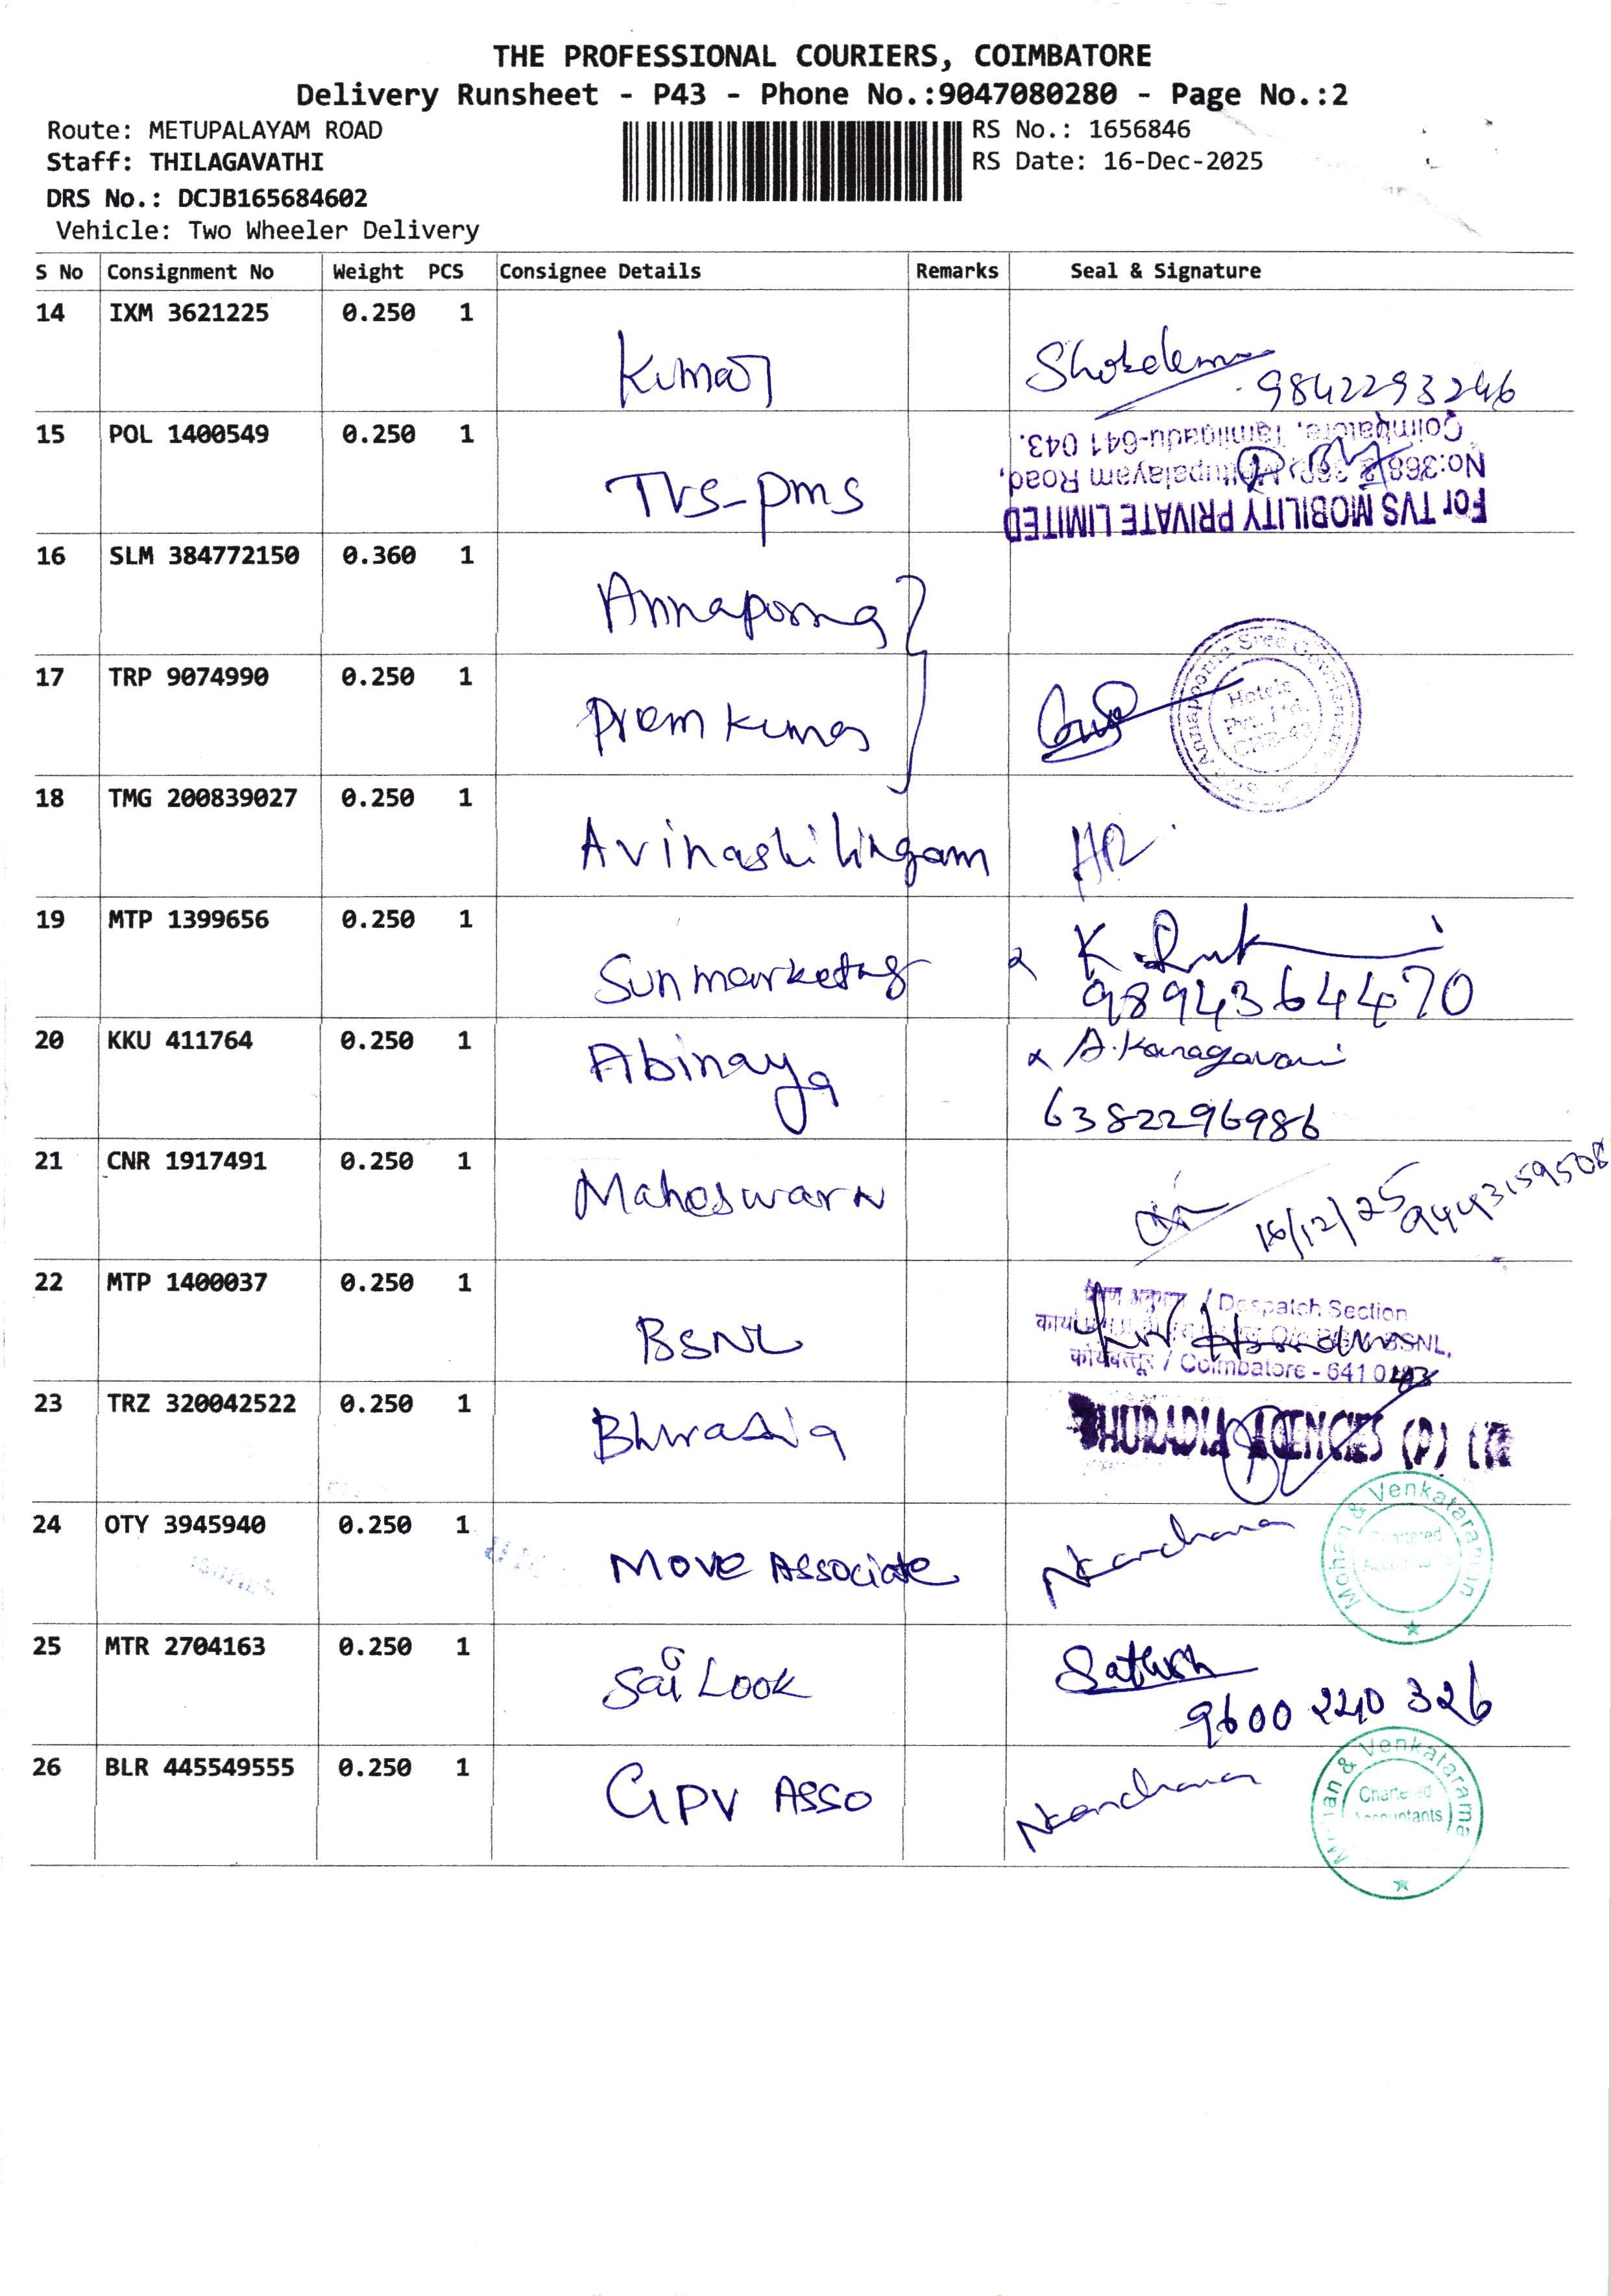 THE PROFESSIONAL COURIERS, COIMBATORE
Delivery Runsheet - P43 - Phone No.:9047080280 - Page No.:2
Route: METUPALAYAM ROAD
RS No.: 1656846
Staff: THILAGAVATHI
RS Date: 16-Dec-2025
DRS No.: DCJB165684602
Vehicle: Two Wheeler Delivery
S No Consignment No Weight PCS Consignee Details Remarks Seal & Signature
14 IXM 3621225 0.250 1
Kumar
9842293246
15 POL 1400549 0.250 1
TVS-pms
For TVS MOBILITY PRIVATE LIMITED
Mettupalayam Road,
Coimbatore, Tamilnadu-641 043.
16 SLM 384772150 0.360 1
Annaporna
17 TRP 9074990 0.250 1
Prem kumar
Annapoorna Sree
Hotels
Pvt. Ltd.
CBE-43
18 TMG 200839027 0.250 1
Avinashilingam HR
19 MTP 1399656 0.250 1
Sun marketing K.
9894364470
20 KKU 411764 0.250 1
Abinaya A.Kanagavani
6382296986
21 CNR 1917491 0.250 1
Maheswari
16/12/25 9443159508
22 MTP 1400037 0.250 1
BSNL
/ Despatch Section
BSNL,
कोयंबत्तूर / Coimbatore - 641 043
23 TRZ 320042522 0.250 1
AGENCIES (P) LTD
24 OTY 3945940 0.250 1
Move Associate
Mohan & Venkataraman
Chartered
Accountants
25 MTR 2704163 0.250 1
Sai Look Sathish
9600 240 326
26 BLR 445549555 0.250 1
GPV ASSO
Mohan & Venkataraman
Chartered
Accountants